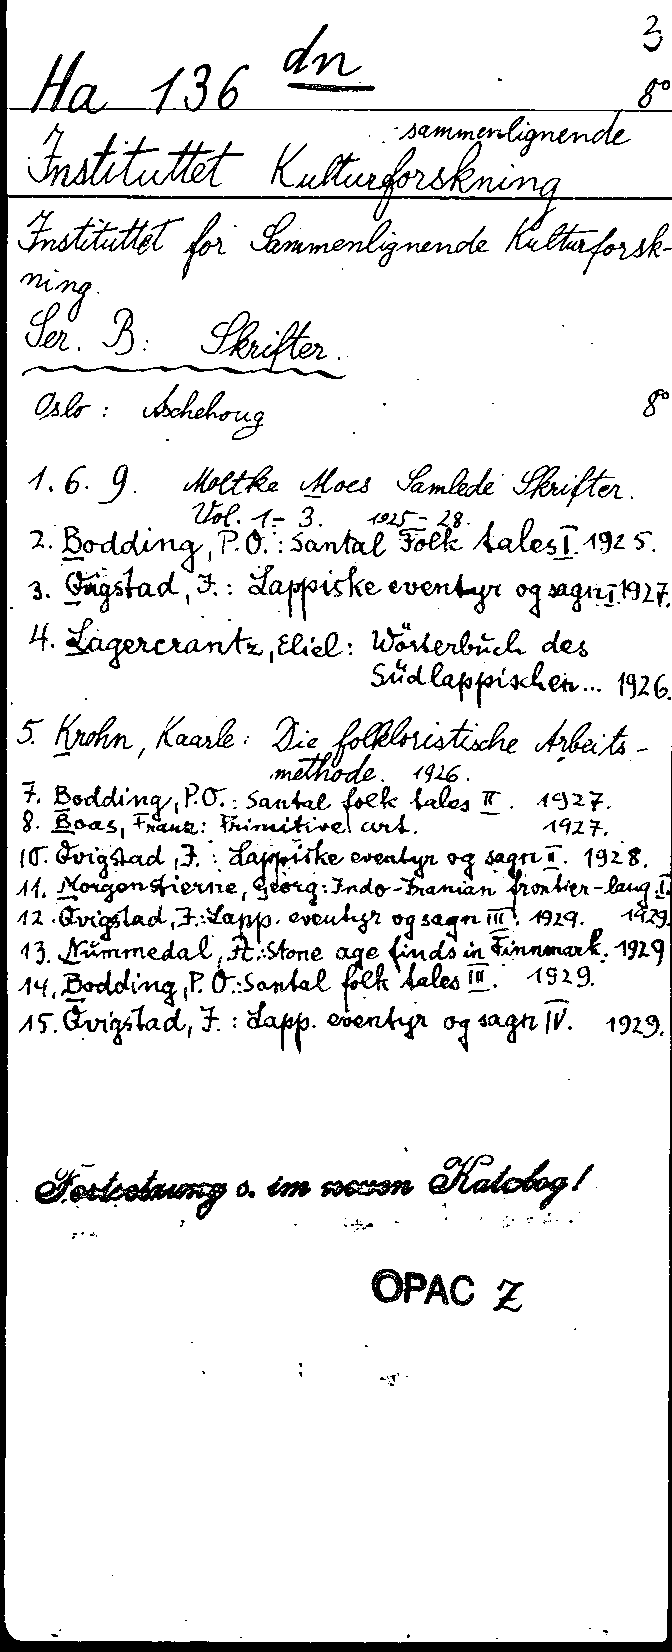 3
Ha 136 dn 8°
sammenlignende
Instituttet Kulturforskning
Instituttet for Sammenlignende Kulturforsk-
ning.
Ser. B: Skrifter.
Oslo: Aschehoug 8°
1. 6. 9. Moltke Moes Samlede Skrifter.
Vol. 1-3. 1925-28.
2. Bodding, P.O.: Santal Folk tales I. 1925.
3. Qvigstad, J.: Lappiske eventyr og sagn I. 1927.
4. Lagercrantz, Eliel: Wörterbuch des
Südlappischen... 1926.
5. Krohn, Kaarle: Die folkloristische Arbeits-
methode. 1926.
7. Bodding, P.O.: Santal folk tales II. 1927.
8. Boas, Franz: Primitive art. 1927.
10. Qvigstad, J.: Lappiske eventyr og sagn II. 1928.
11. Morgenstierne, Georg: Indo-Iranian frontier-lang. I.
12. Qvigstad, J.: Lapp. eventyr og sagn III. 1929. 1929.
13. Nummedal, A.: Stone age finds in Finnmark. 1929
14. Bodding, P.O.: Santal folk tales III. 1929.
15. Qvigstad, J.: Lapp. eventyr og sagn IV. 1929.
Fortsetzung s. im neuen Katalog!
OPAC Z